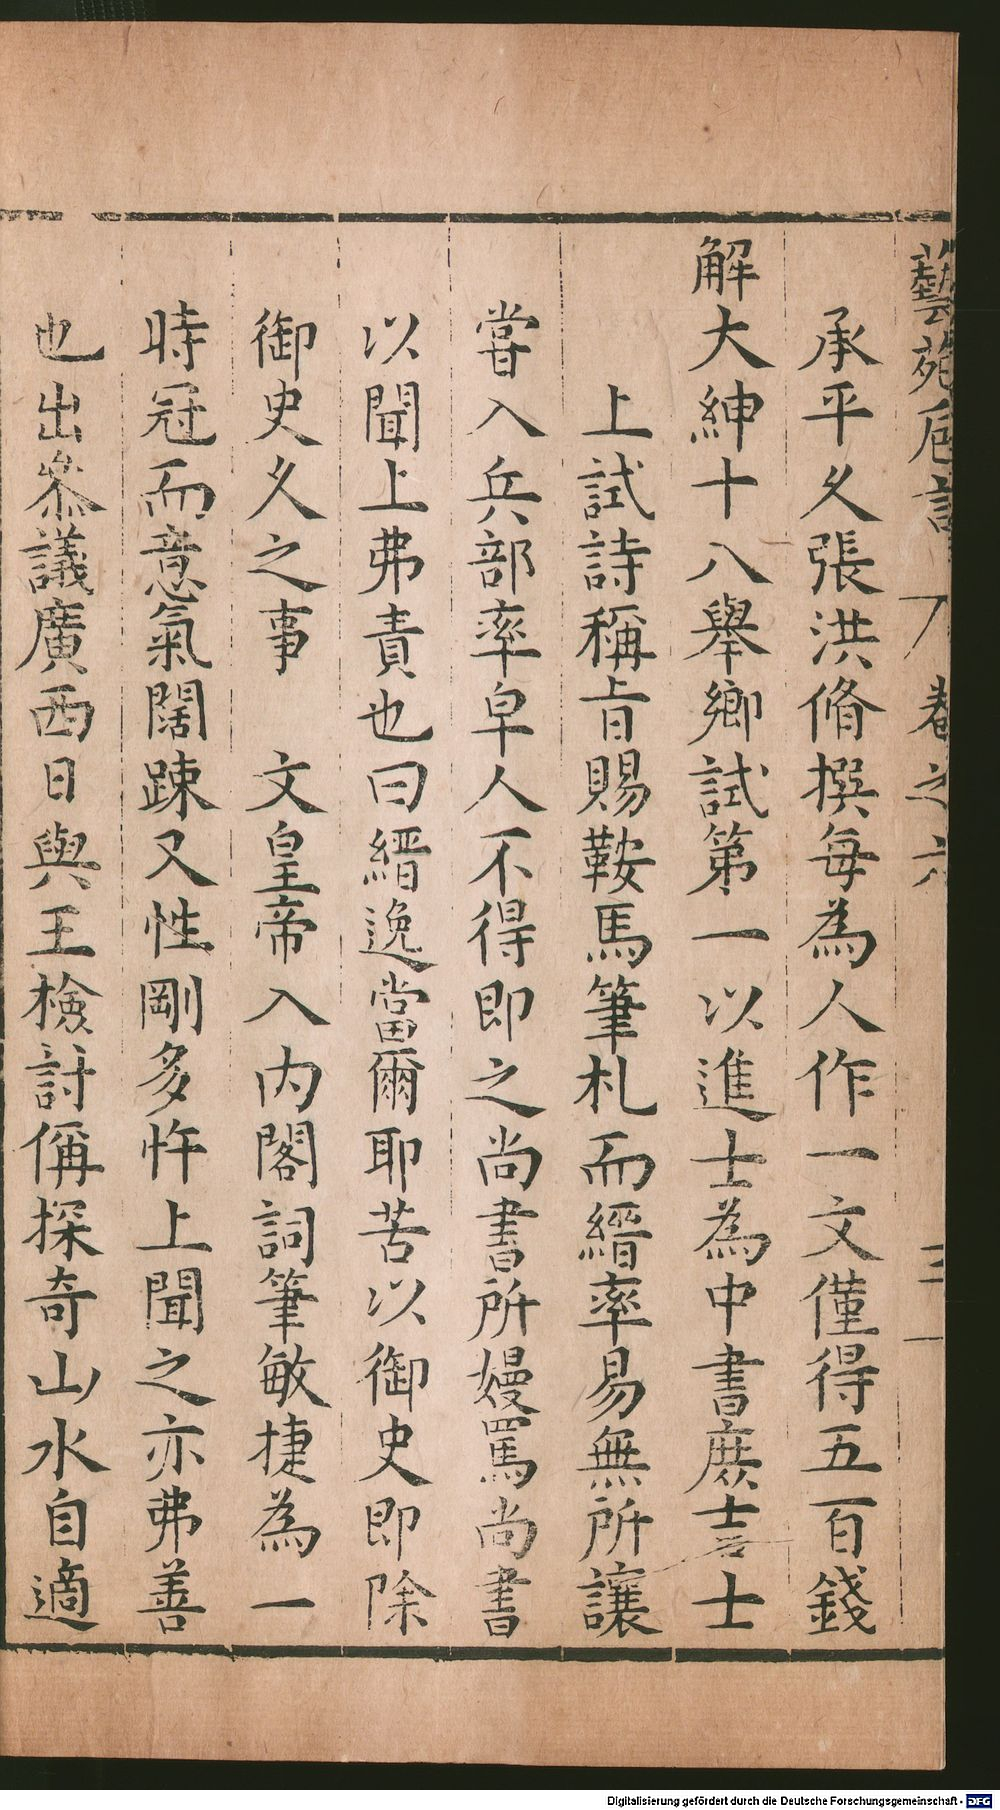 藝苑卮言 八 卷之六 三
承平久張洪脩撰每為人作一文僅得五百錢
解大紳十八舉鄉試第一以進士為中書庶吉士
上試詩稱旨賜鞍馬筆札而縉率易無所讓
嘗入兵部率皁人不得即之尚書所嫚罵尚書
以聞上弗責也曰縉逸當爾耶苦以御史即除
御史久之事 文皇帝入内閣詞筆敏捷為一
時冠而意氣闊踈又性剛多忤上聞之亦弗善
也出叅議廣西日與王檢討偁探奇山水自適
Digitalisierung gefördert durch die Deutsche Forschungsgemeinschaft - DFG